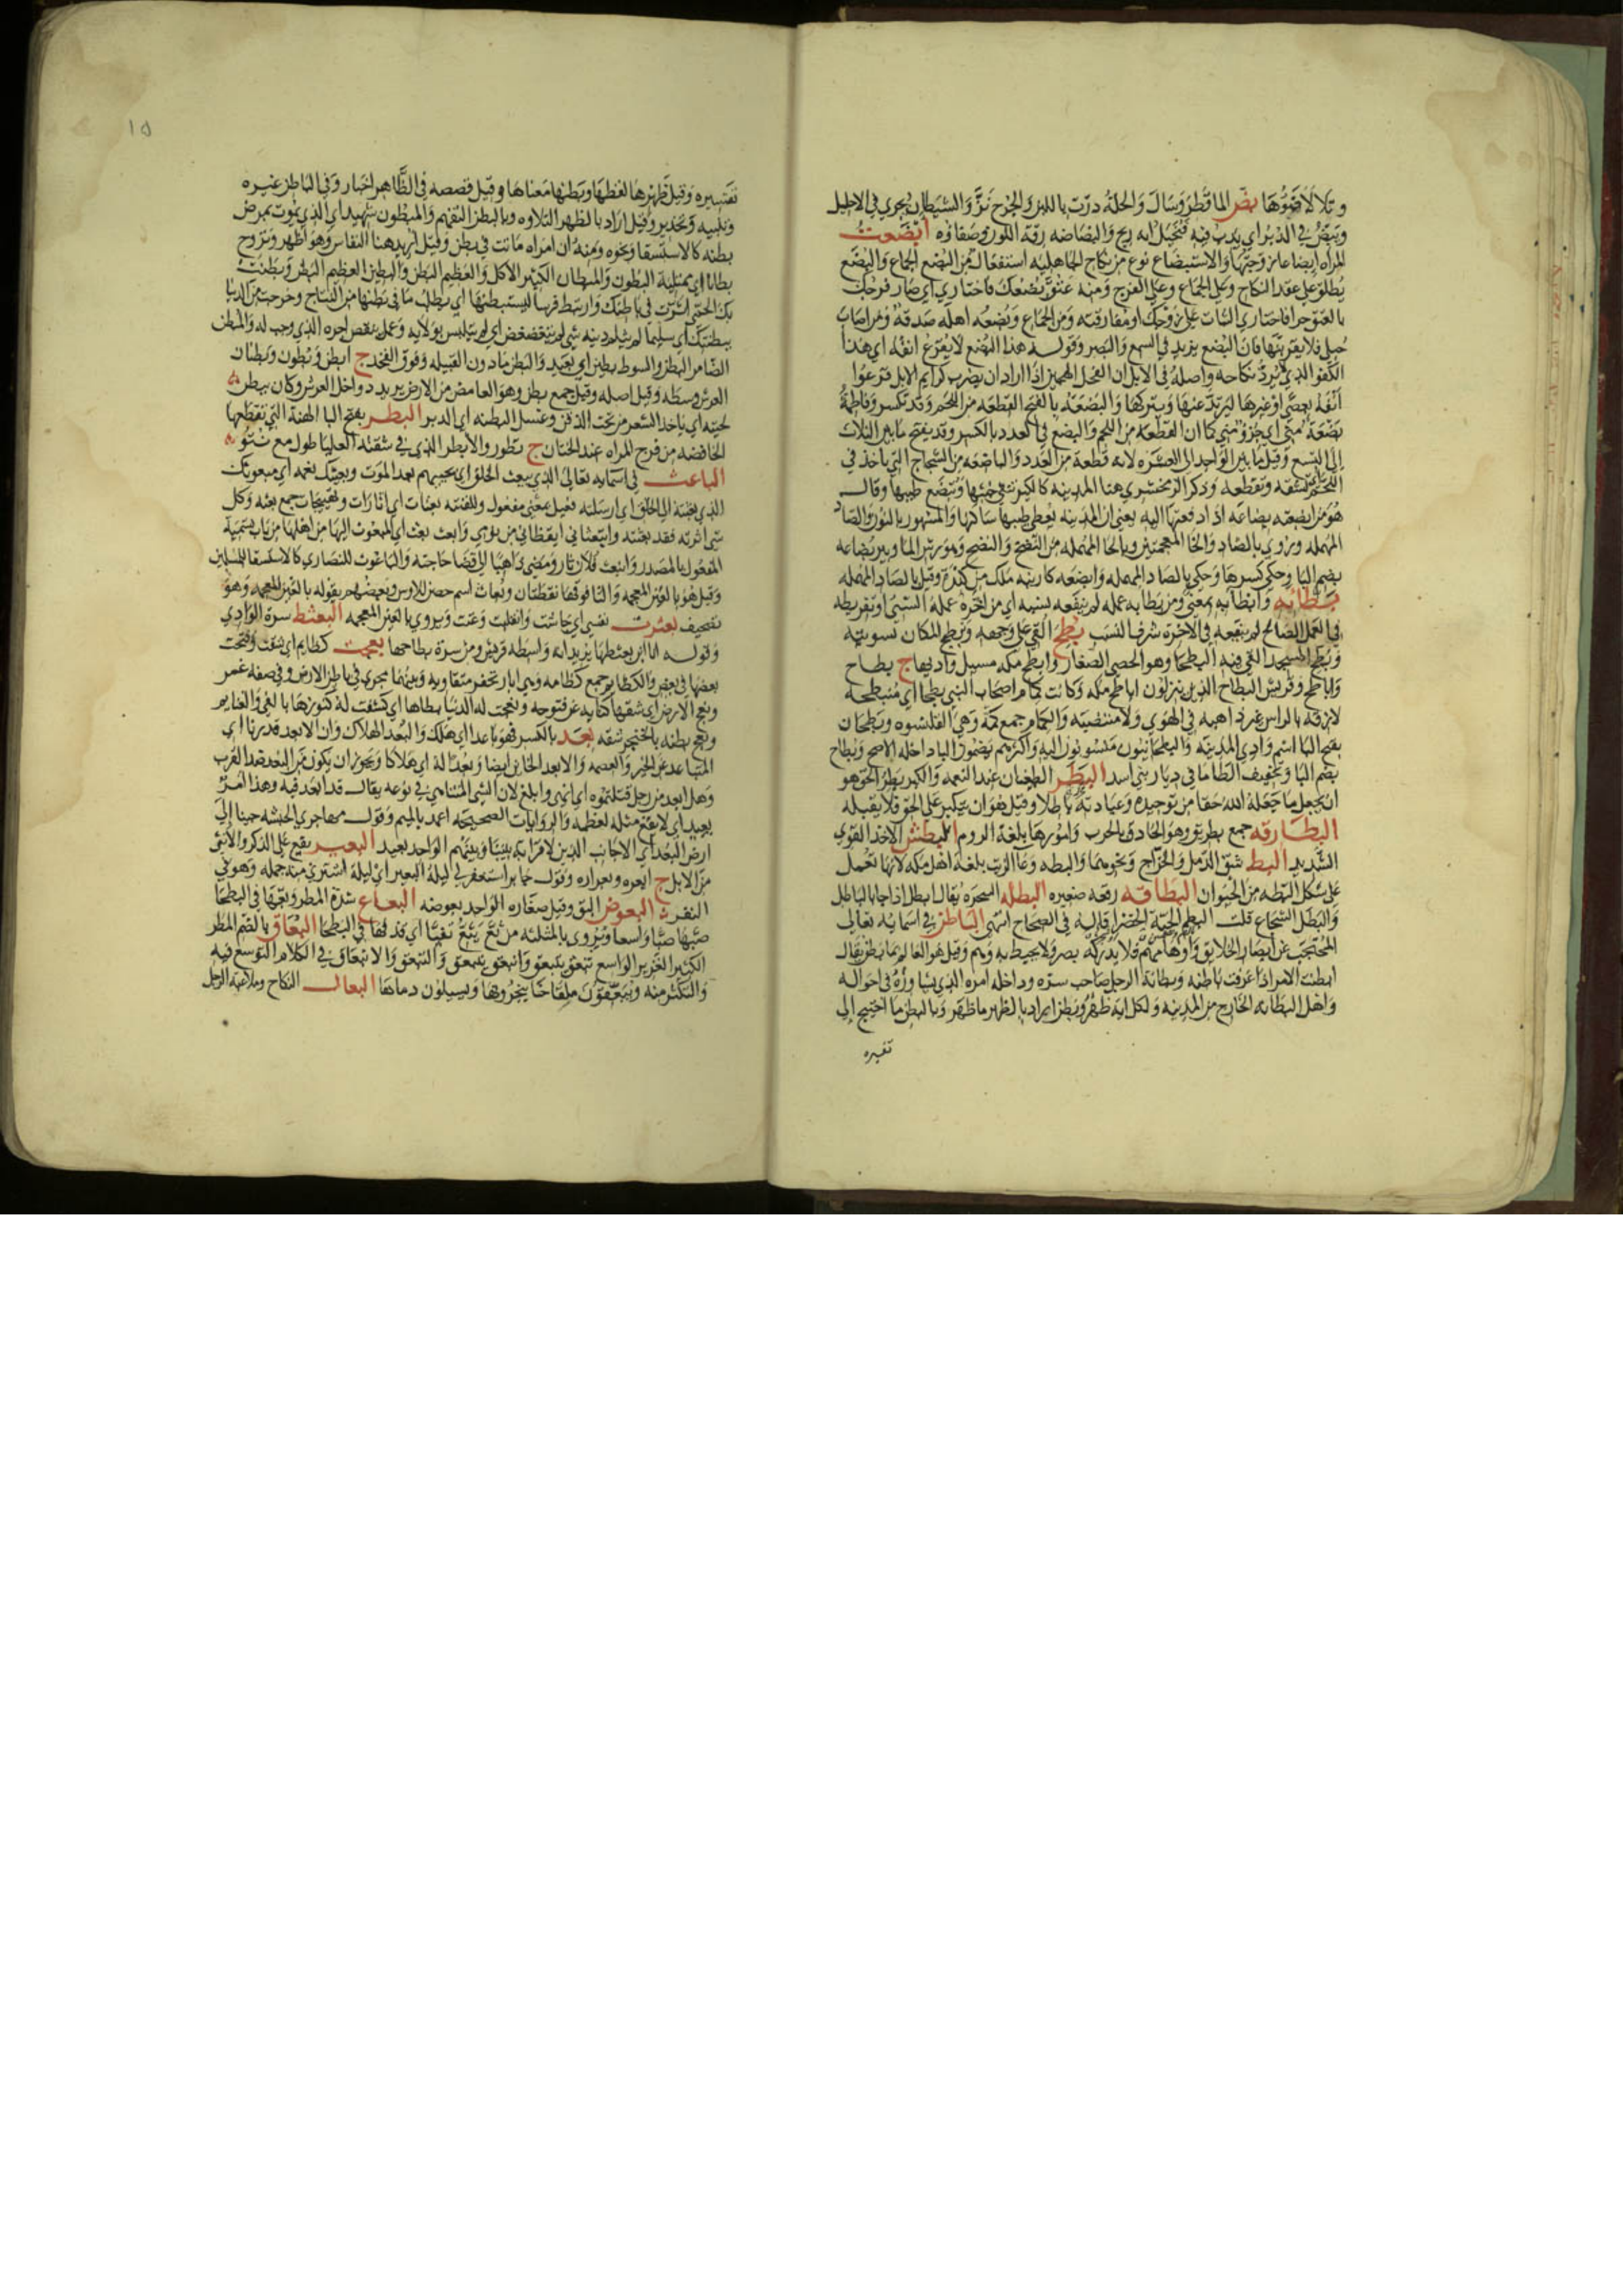 وتلألأ ضوها بض الما قطر وسال والحلمة درت باللبن والجرح نز والشيطان يجري في الاحليل
ويبض في الدبر اي يدب فيه فيخيل انه ريح والبضاضه رقة اللون وصفاؤه ابضعت
المراه ابضاعا زوجتها والاستبضاع نوع من نكاح الجاهليه استفعال من البضع الجماع والبضع
يطلق على عقد النكاح وعلى الجماع وعلى الفرج ومنه عتق بضعك فاختاري اي صار فرجك
بالعتق حرا فاختاري الثبات على زوجك او مفارقته ومن الجماع وبضعه اهله صدقة ومن اصاب
حبلى فلا يقربنها فان البضع يزيد في السمع والبصر وقوله هذا البضع لا يقرع انفه اي هذا
الكفو الذي لا يرد نكاحه واصله في الابل ان الفحل الهجين اذا اراد ان يضرب كرايم الابل قرعوا
انفه بعصى او غيرها ليرتد عنها ويتركها والبضعة بالفتح القطعه من اللحم وقد تكسر وفاطمة
بضعة مني اي جزؤ مني كما ان القطعة من اللحم والبضع في العدد بالكسر وقد يفتح ما بين الثلاث
الى التسع وقيل ما بين الواحد الى العشره لانه قطعة من العدد والباضعه من الشجاج التي ياخذ في
اللحم اي تشقه وتقطعه وذكر الزمخشري هنا المدينه كالكير تنفي خبثها وتبضع طيبها وقال
هو من ابضعته بضاعة اذا دفعتها اليه يعني ان المدينه يعطي طيبها ساكنها والمشهور بالنون والصاد
المهمله ويروى بالضاد والخا المعجمتين وبالحا المهمله من النضخ والنضح وهو رش الما وبير بضاعه
بضم البا وحكي كسرها وحكي بالصاد المهمله وابضعه كارنبه ملك من كندة وقيل بالصاد المهمله
بطا به وابطا به بمعنى ومن بطا به عمله لم ينفعه نسبه اي من اخره عمله السيئ او تفريطه
في العمل الصالح لم ينفعه في الاخرة شرف النسب بطح القي على وجهه وبطح المكان تسويته
وبطح المسجد القي فيه البطحا وهو الحصى الصغار وابطح مكه مسيل واديها ج بطاح
واباطح وقريش البطاح الذين ينزلون اباطح مكه وكانت كمام اصحاب النبي بطحا اي منبطحة
لازقة بالراس غير ذاهبه في الهوى ولا منتصبة والكمام جمع كمة وهي القلنسوه وبطحان
بفتح البا اسم وادي المدينه والبطحانيون منسوبون اليه واكثرهم يضمون البا ولعله الاصح وبطاح
بضم البا وتخفيف الطا ما في ديار بني اسد البطر الطغيان عند النعمه والكبر بطر الحق هو
ان يجعل ما جعله الله حقا من توحيده وعبادته باطلا وقيل هو ان يتكبر على الحق فلا يقبله
البطارقه جمع بطريق وهو الحاذق بالحرب وامورها بلغة الروم البطش الاخذ القوي
الشديد البط شق الدمل والخراج ونحوهما والبطه وعا الزيت بلغة اهل مكه لانها تعمل
على شكل البطه من الحيوان البطاقه رقعه صغيره البطله السحرة يقال ابطل اذا جا بالباطل
والبطل الشجاع قلت البطم الحبة الخضرا قاله في الصحاح انتهى الباطن في اسمايه تعالى
المحتجب عن ابصار الخلايق واوهامهم فلا يدركه بصر ولا يحيط به وهم وقيل هو العالم بما بطن يقال
ابطنت الامر اذا عرفت باطنه وبطانة الرجل صاحب سره وداخله امره الذي يشاوره في احواله
واهل البطانه الخارج من المدينه ولكل اية ظهر وبطن اراد بالظهر ما ظهر وبالبطن ما احتيج الى
تفسيره
١٥
تفسيره وقيل ظهرها لفظها وبطنها معناها وقيل قصصه في الظاهر اخبار وفي الباطن عبره
وتنبيه وتحذير وقيل اراد بالظهر التلاوه وبالبطن التفهم والمبطون شهيد اي الذي يموت بمرض
بطنه كالاستسقا ونحوه ومنه ان امراه ماتت في بطن وقيل اريد هنا النفاس وهو اظهر وتروح
بطانا اي ممتلية البطون والمبطان الكثير الاكل والعظيم البطن والبطين العظيم البطن وبطنت
بك الحمى اثرت في باطنك وارتبط فرسا ليستبطنها اي يطلب ما في بطنها من النتاج وخرجت من الدنيا
ببطنتك اي سليما لم يثلم دينه شي لم يتغضغض اي لم يتلبس بولايه وعمل ينقص اجره الذي وجب له والمبطن
الضامر البطن والشوط بطين اي بعيد والبطن ما دون القبيله وفوق الفخذ ج ابطن وبطون وبطنان
العرش وسطه وقيل اصله وقيل جمع بطن وهو الغامض من الارض يريد دواخل العرش وكان يبطن
لحيته اي ياخذ الشعر من تحت الذقن وغسل البطنه اي الدبر البظر بفتح البا الهنة التي تقطعها
الخافضه من فرج المراه عند الختان ج بظور والابظر الذي في شفته العليا طول مع نتوء
الباعث في اسمايه تعالى الذي يبعث الخلق اي يحييهم بعد الموت وبعيثك نعمه اي مبعوثك
الذي بعثته الى الخلق اي ارسلته فعيل بمعنى مفعول وللفتنه بعثات اي اثارات وتهييجات جمع بعثه وكل
شي اثرته فقد بعثته وابتعثاني ايقظاني من نومي وابعث بعث اي المبعوث اليها من اهلها من باب تسمية
المفعول بالمصدر وانبعث فلان ثار ومضى ذاهبا الى قضا حاجته والباعوث للنصارى كالاستسقا للمسلمين
وقيل هو بالغين المعجمه والتا فوقها نقطتان وبعاث اسم حصن للاوس وبعضهم يقوله بالغين المعجمه وهو
تصحيف بعثرت نفسي اي جاشت وانقلبت وغثت ويروى بالغين المعجمه البعثط سرة الوادي
وقوله انا ابن بعثطها يريد انه واسطه قريش ومن سرة بطاحها بعجت كظايم اي شقت وفتحت
بعضها في بعض والكظايم جمع كظامه وهي ابار تحفر متقاربه وبينهما مجرى في باطن الارض وفي صفة عمر
وبعج الارض اي شقها كنايه عن فتوحه وبعجت له الدنيا بطانها اي كشفت له كنوزها بالفي والغنايم
وبعج بطنه بالخنجر شقه بعد بالكسر فهو باعد اي هلك والبعد الهلاك وان الابعد قد زنا اي
المتباعد عن الخير والعصمه والابعد الخاين ايضا وبعدا له اي هلاكا ويجوز ان يكون من البعد ضد القرب
وهل ابعد من رجل قتلتموه اي انهى وابلغ لان الشي المتناهي في نوعه يقال قد ابعد فيه وهذا امر
بعيد اي لا يقع مثله لعظمه والروايات الصحيحه اعمد بالميم وقول مهاجري الحبشه جينا الى
ارض البعدا اي الاجانب الذين لا قرابه بيننا وبينهم الواحد بعيد البعير يقع على الذكر والانثى
من الابل ج ابعره وبعران وقول جابر استغفر لي ليلة البعير اي ليلة اشترى منه جمله وهو في
السفر البعوض البق وقيل صغاره الواحد بعوضه البعاع شدة المطر وبعها في البطحا
صبها صبا واسعا ويروى بالمثلثه من ثع يثع تقيأ اي قذفها في البطحا البعاق بالضم المطر
الكثير الغزير الواسع تبعق يتبعق وانبعق ينبعق والتبعق والانبعاق في الكلام التوسع فيه
والتكثر منه ويبعقون لقاحنا ينحرونها ويسيلون دماها البعال النكاح وملاعبة الرجل